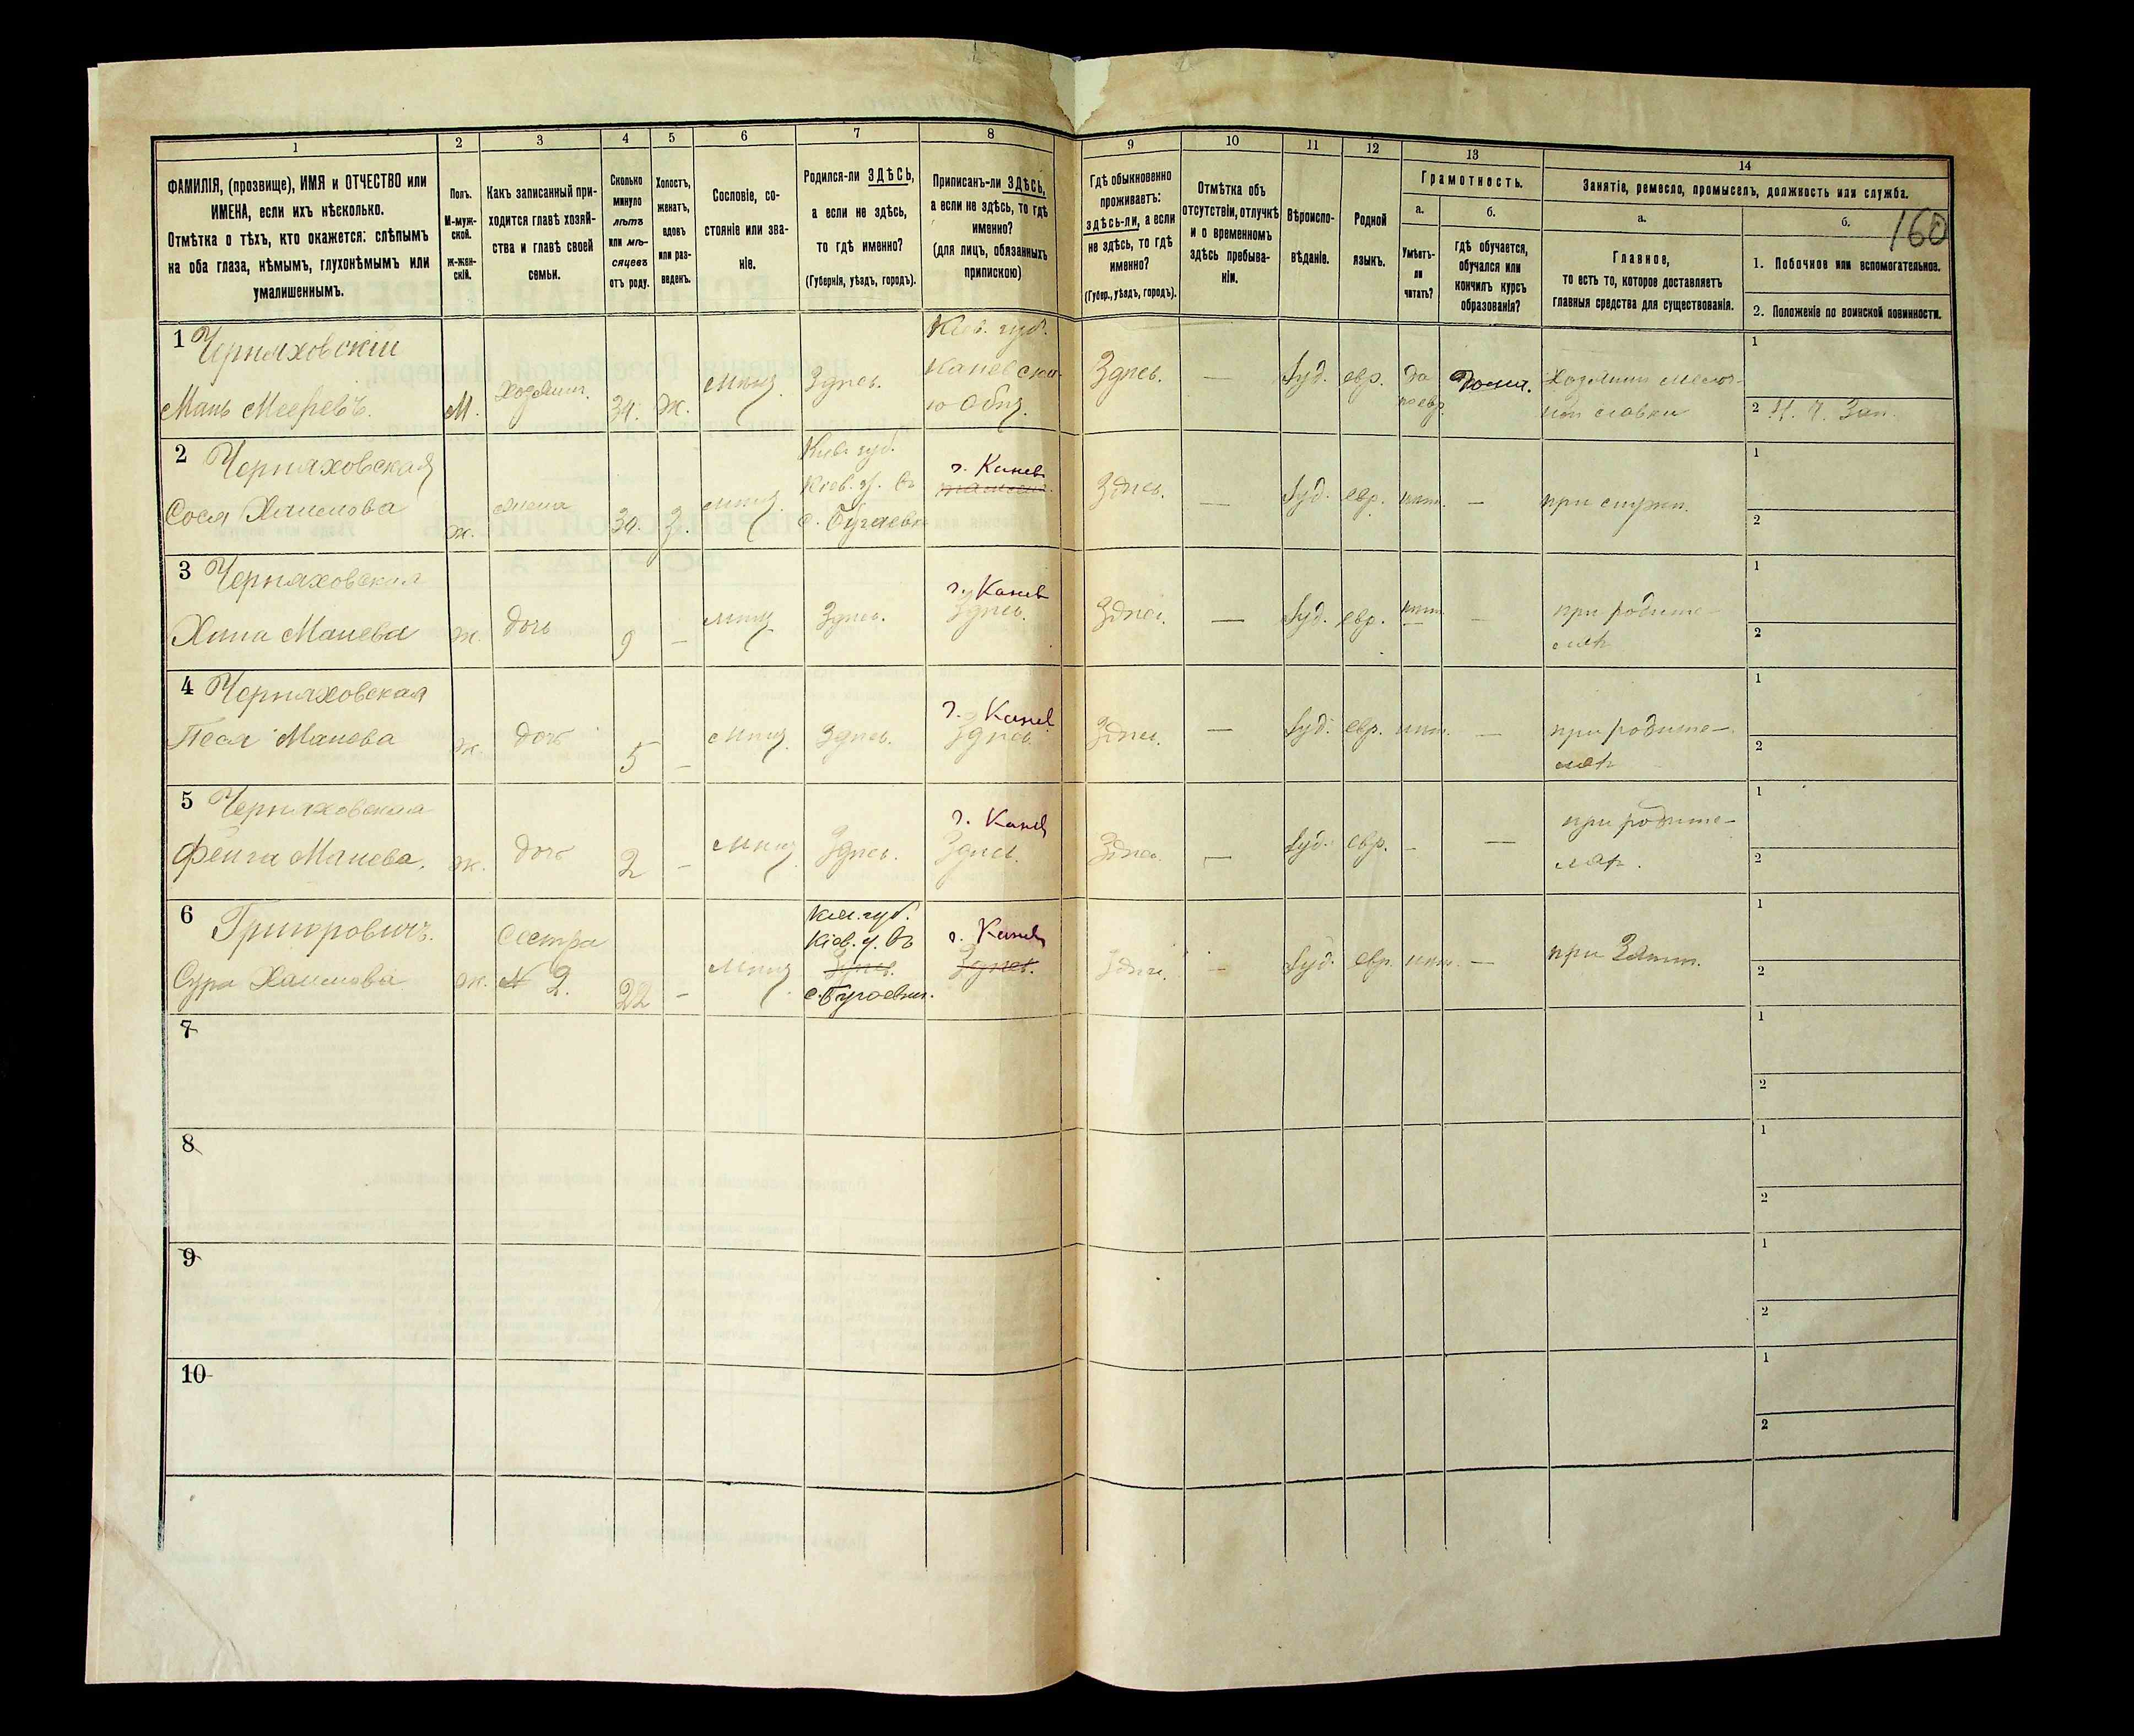 1
2
3
4
5
6
7
8
9
10
11
12
13
14
ФАМИЛІЯ, (прозвище), ИМЯ и ОТЧЕСТВО или
ИМЕНА, если ихъ нѣсколько.
Отмѣтка о тѣхъ, кто окажется: слѣпымъ
на оба глаза, нѣмымъ, глухонѣмымъ или
умалишеннымъ.
Полъ.
М-муж-
ской.
Ж-жен-
скій.
Какъ записанный при-
ходится главѣ хозяй-
ства и главѣ своей
семьи.
Сколько
минуло
лѣтъ
или мѣ-
сяцевъ
отъ роду.
Холостъ,
женатъ,
вдовъ
или раз-
веденъ.
Сословіе, со-
стояніе или зва-
ніе.
Родился-ли ЗДѢСЬ,
а если не здѣсь,
то гдѣ именно?
(Губернія, уѣздъ, городъ).
Приписанъ-ли ЗДѢСЬ,
а если не здѣсь, то гдѣ
именно?
(для лицъ, обязанныхъ
припискою)
Гдѣ обыкновенно
проживаетъ:
здѣсь-ли, а если
не здѣсь, то гдѣ
именно?
(Губер., уѣздъ, городъ).
Отмѣтка объ
отсутствіи, отлучкѣ
и о временномъ
здѣсь пребыва-
ніи.
Вѣроиспо-
вѣданіе.
Родной
языкъ.
Грамотность.
а.
Умѣетъ-
ли
читать?
б.
гдѣ обучается,
обучался или
кончилъ курсъ
образованія?
Занятіе, ремесло, промыселъ, должность или служба.
а.
Главное,
то есть то, которое доставляетъ
главныя средства для существованія.
б.
160
1. Побочное или вспомогательное.
2. Положеніе по воинской повинности.
1 Черняховскій
Мань Мееревъ.
М.
хозяин.
34.
Ж.
Мѣщ.
Здѣсь.
Кіев. губ.
Каневска-
го Общ.
Здѣсь.
—
Іуд.
евр.
да
по евр.
дома.
Хозяинъ мелоч-
ной лавки
1
2 Н. Ч. Зап.
2 Черняховская
Сося Хаимова
Ж.
жена
30.
З.
Мѣщ.
Кіев. губ.
Кіев. у. въ
с. Бугаевк.
г. Канев
Здѣсь.
—
Іуд.
евр.
нѣт.
—
при мужѣ.
1
2
3 Черняховская
Хина Манева
Ж.
дочь
9
—
Мѣщ
Здѣсь.
г. Канев
Здѣсь.
Здѣсь.
—
Іуд.
евр.
нѣт.
—
при родите-
ляхъ
1
2
4 Черняховская
Песя Манева
Ж.
дочь
5
—
Мѣщ.
Здѣсь.
г. Канев
Здѣсь.
Здѣсь.
—
Іуд.
евр.
нѣт.
—
при родите-
ляхъ
1
2
5 Черняховская
Фейга Манева.
Ж.
дочь
2
—
Мѣщ
Здѣсь.
г. Канев
Здѣсь.
Здѣсь.
—
Іуд.
евр.
—
—
при родите-
ляхъ.
1
2
6 Григоровичъ.
Сура Хаимова
Ж.
Сестра
№ 2.
22
—
Мѣщ
Кіев. губ.
Кіев. у. въ
Здѣсь.
с. Бугаевк.
г. Канев
Здѣсь.
Здѣсь.
—
Іуд.
евр.
нѣт.
—
при Зят.
1
2
7
1
2
8
1
2
9
1
2
10
1
2